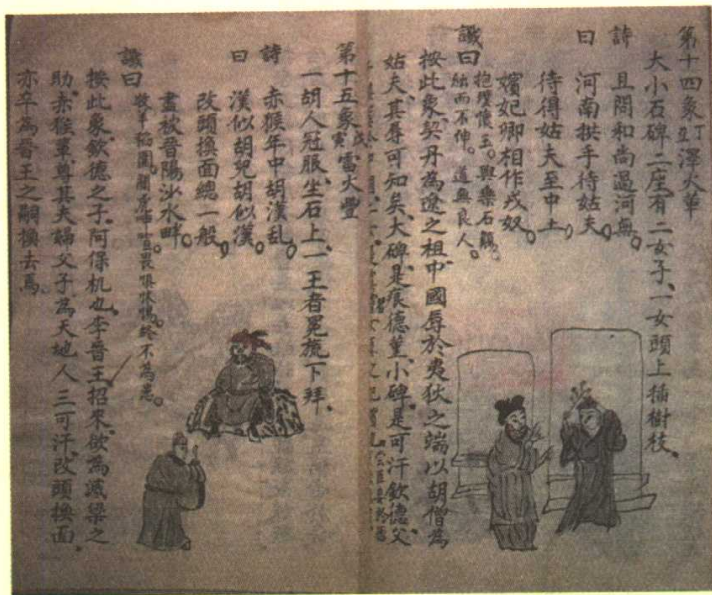 第十四象 丁丑 澤火革
大小石碑二座、有二女子、一女頭上插樹枝、
詩 且問和尚過河無。
曰 河南拱手待姑夫。
待得姑夫至中土、
嬪妃卿相作戎奴。
讖曰 抱璞懷玉。與藥石親。
結而不伸。道無良人。
按此象、契丹為遼之祖、中國辱於夷狄之端、以胡僧為
姑夫、其辱可知矣、大碑、是痕德堇、小碑、是可汗欽德、父
第十五象 戊寅 雷火豐
一胡人冠服、坐石上、一王者冕旒下拜、
詩 赤猴年中胡漢亂、
曰 漢似胡兒胡似漢。
改頭換面總一般、
盡被晉陽沙水畔。
讖曰 牧羊稻園。
終不為患。
按此象、欽德之子、阿保机也、李晉王、招來、欲為滅梁之
助、赤猴輩、尊其夫婦父子、為天地人三可汗、改頭換面、
亦卒為晉王之嗣換去焉、